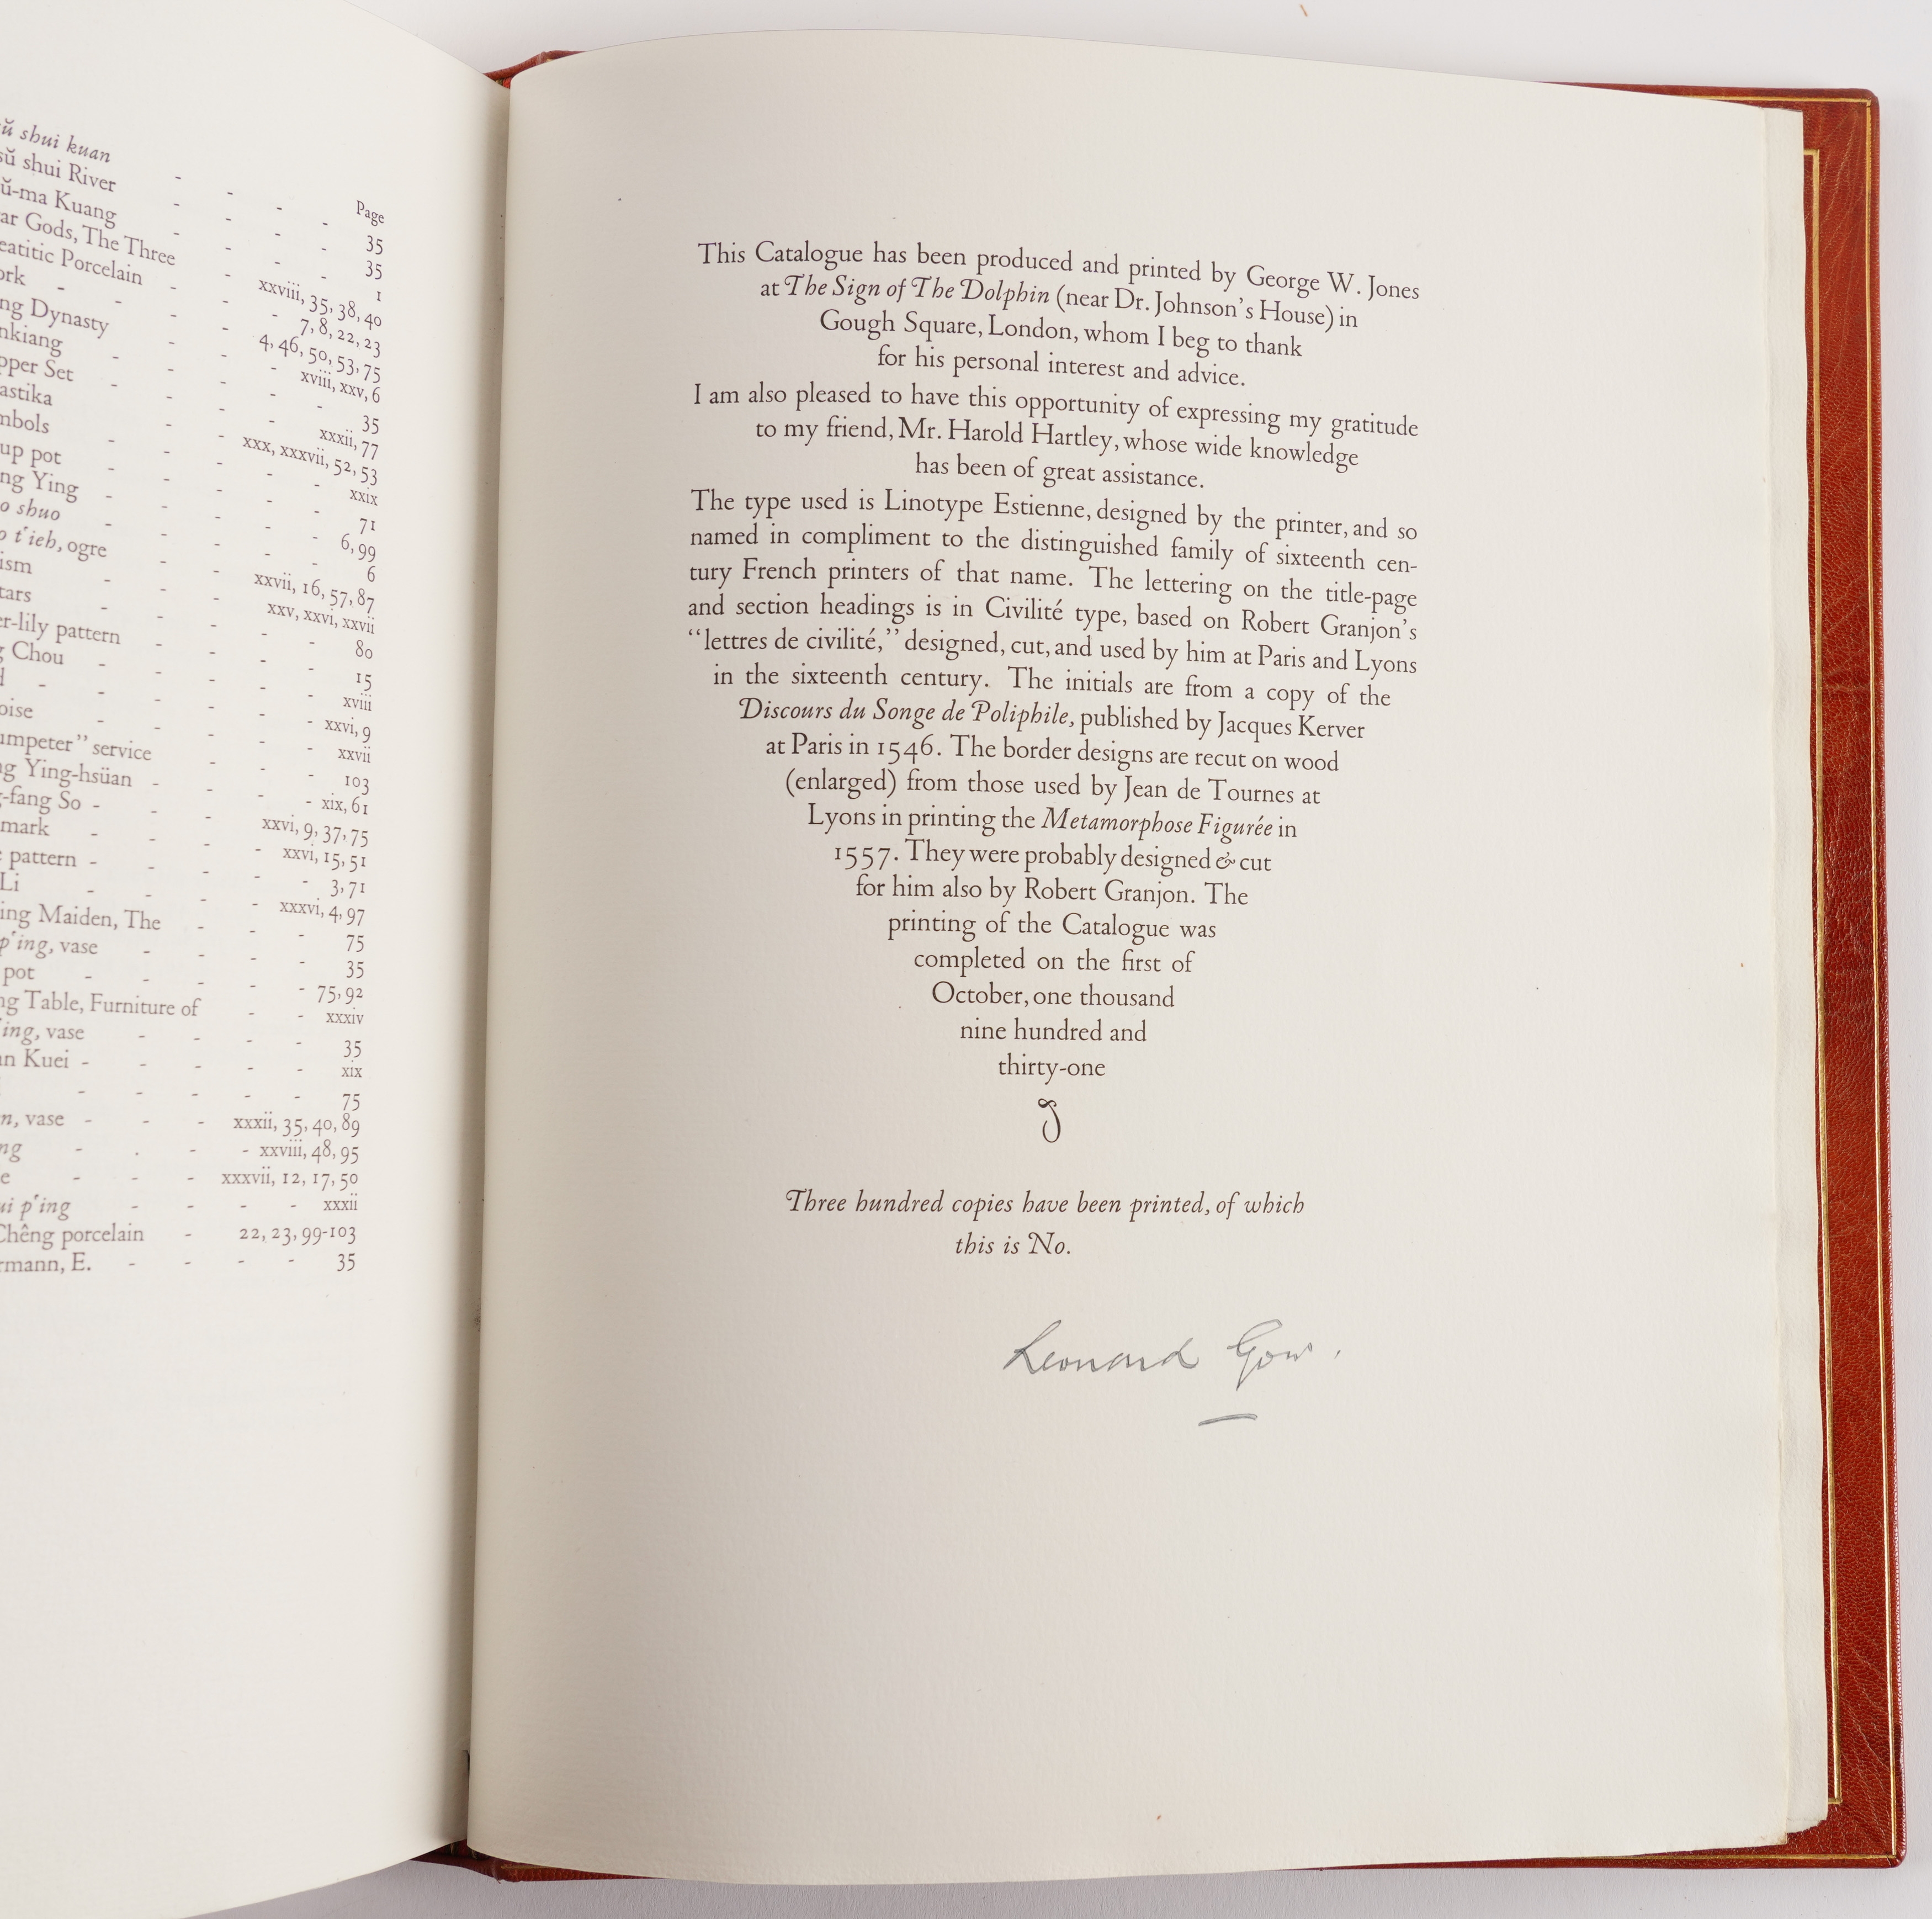 ŭ shui kuan
sŭ shui River
Page
35
ŭ-ma Kuang
35
ar Gods, The Three
1
eatitic Porcelain - xxviii, 35, 38, 40
ork - - - - 7, 8, 22, 23
ng Dynasty - - 4, 46, 50, 53, 75
nkiang - - - xviii, xxv, 6
pper Set - - - 35
astika - - - xxxii, 77
mbols - - xxx, xxxvii, 52, 53
up pot - - - xxix
ng Ying - - - 71
o shuo - - - 6, 99
o t'ieh, ogre - - - 6
ism - - xxvii, 16, 57, 87
tars - - xxv, xxvi, xxvii
er-lily pattern - - - 80
g Chou - - - 15
d - - - xviii
oise - - - xxvi, 9
umpeter" service - - xxvii
ng Ying-hsüan - - - 103
-fang So - - - xix, 61
mark - - - xxvi, 9, 37, 75
pattern - - - xxvi, 15, 51
Li - - - 3, 71
ing Maiden, The - xxxvi, 4, 97
p'ing, vase - - - 75
pot - - - 35
ng Table, Furniture of - 75, 92
'ing, vase - - xxxiv
an Kuei - - - 35
xix
75
n, vase - - - xxxii, 35, 40, 89
ng - . - - xxviii, 48, 95
e - - - xxxvii, 12, 17, 50
ui p'ing - - - - xxxii
Chêng porcelain - 22, 23, 99-103
rmann, E. - - - - 35
This Catalogue has been produced and printed by George W. Jones
at The Sign of The Dolphin (near Dr. Johnson's House) in
Gough Square, London, whom I beg to thank
for his personal interest and advice.
I am also pleased to have this opportunity of expressing my gratitude
to my friend, Mr. Harold Hartley, whose wide knowledge
has been of great assistance.
The type used is Linotype Estienne, designed by the printer, and so
named in compliment to the distinguished family of sixteenth cen-
tury French printers of that name. The lettering on the title-page
and section headings is in Civilité type, based on Robert Granjon's
"lettres de civilité," designed, cut, and used by him at Paris and Lyons
in the sixteenth century. The initials are from a copy of the
Discours du Songe de Poliphile, published by Jacques Kerver
at Paris in 1546. The border designs are recut on wood
(enlarged) from those used by Jean de Tournes at
Lyons in printing the Metamorphose Figurée in
1557. They were probably designed & cut
for him also by Robert Granjon. The
printing of the Catalogue was
completed on the first of
October, one thousand
nine hundred and
thirty-one
Three hundred copies have been printed, of which
this is No.
Leonard Gow.